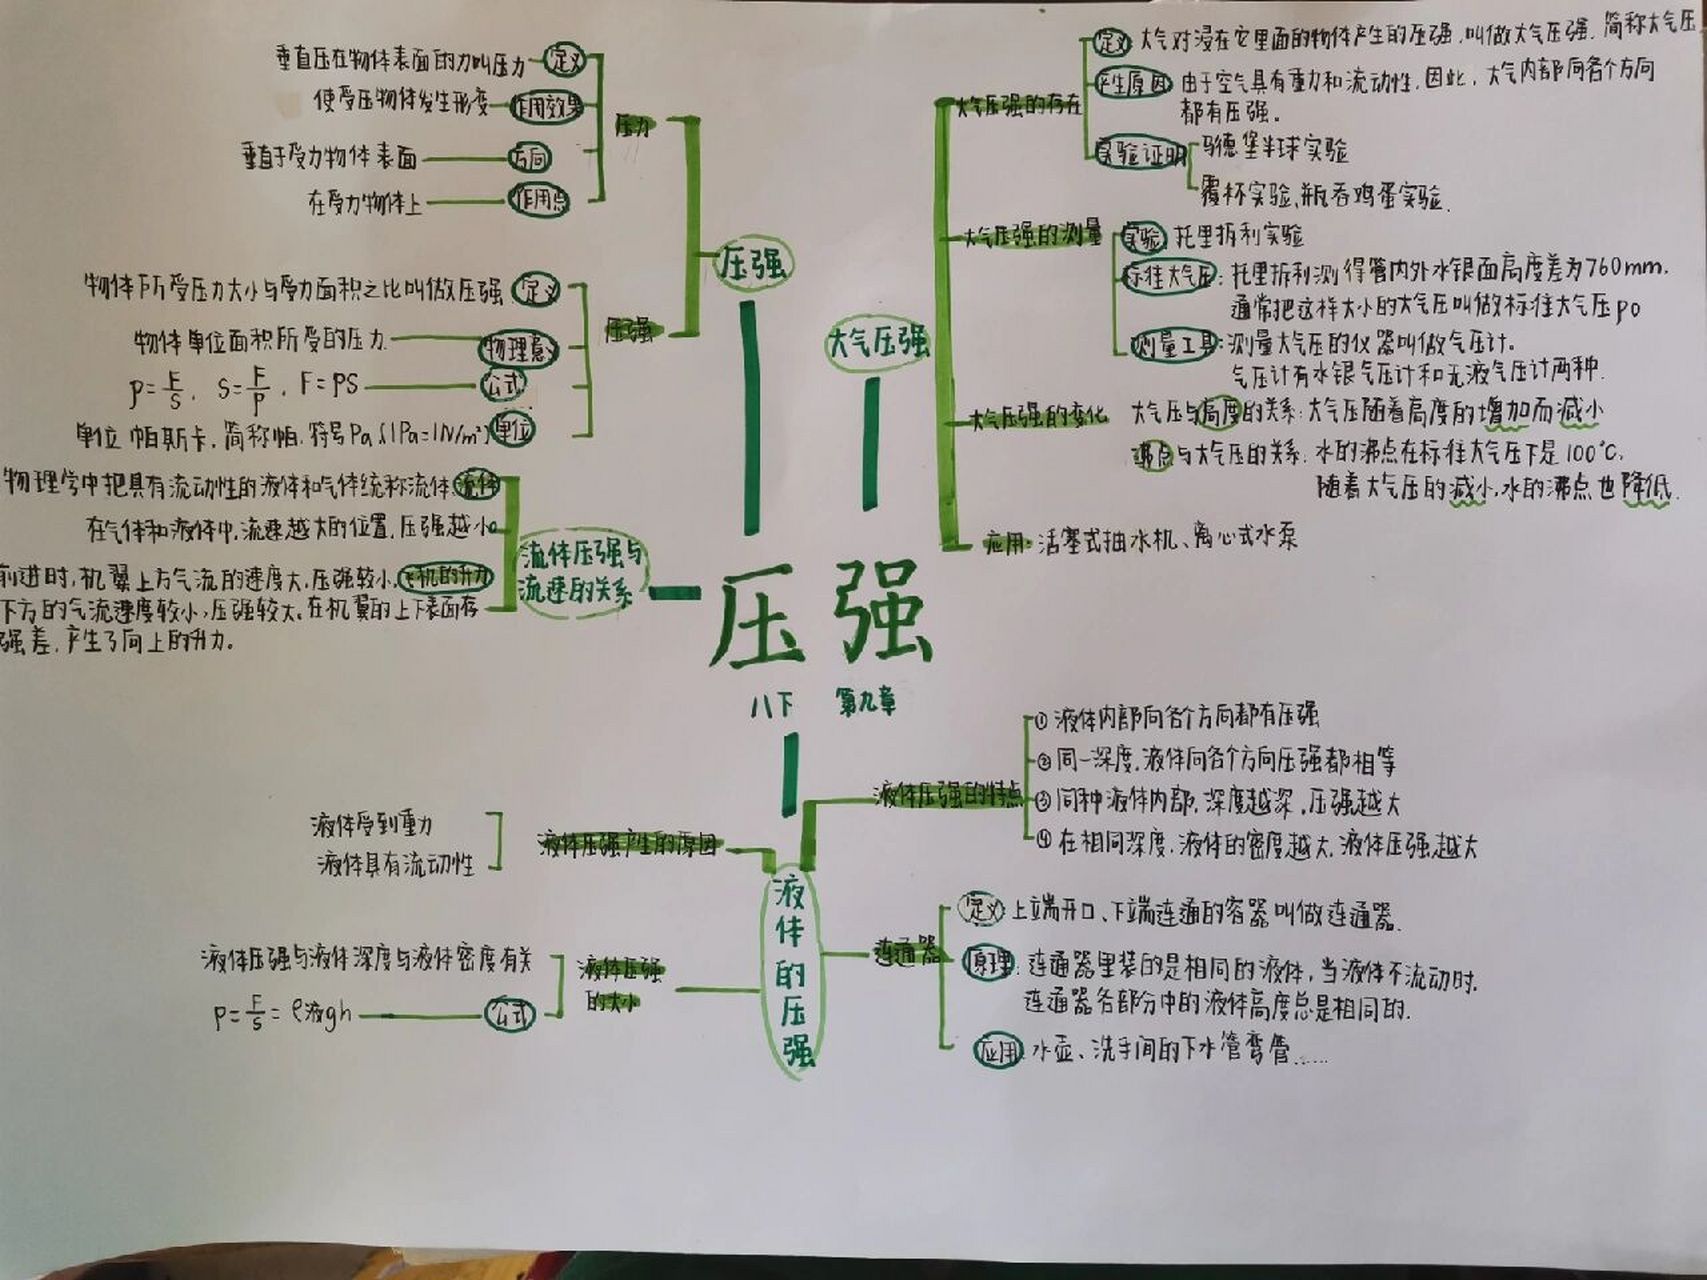 压强
八下 第九章
压强
压力
垂直压在物体表面的力叫压力 定义
使受压物体发生形变 作用效果
垂直于受力物体表面 方向
在受力物体上 作用点
压强
物体所受压力大小与受力面积之比叫做压强 定义
物体单位面积所受的压力 物理意义
p=F/S, S=F/P, F=PS 公式
单位 帕斯卡,简称帕.符号Pa(1Pa=1N/m²) 单位
流体压强与
流速的关系
物理学中把具有流动性的液体和气体统称流体 流体
在气体和液体中,流速越大的位置,压强越小
前进时,机翼上方气流的速度大,压强较小, 飞机的升力
下方的气流速度较小,压强较大.在机翼的上下表面存
强差,产生了向上的升力。
大气压强
大气压强的存在
定义 大气对浸在它里面的物体产生的压强,叫做大气压强,简称大气压
产生原因 由于空气具有重力和流动性,因此,大气内部向各个方向
都有压强。
实验证明 马德堡半球实验
覆杯实验、瓶吞鸡蛋实验.
大气压强的测量
实验 托里拆利实验
标准大气压: 托里拆利测得管内外水银面高度差为760mm.
通常把这样大小的大气压叫做标准大气压p0
测量工具: 测量大气压的仪器叫做气压计。
气压计有水银气压计和无液气压计两种.
大气压强的变化 大气压与高度的关系:大气压随着高度的增加而减小
沸点与大气压的关系: 水的沸点在标准大气压下是100℃,
随着大气压的减小,水的沸点也降低.
应用: 活塞式抽水机、离心式水泵
液体的压强
液体压强产生的原因
液体受到重力
液体具有流动性
液体压强
的大小
液体压强与液体深度与液体密度有关
p=F/S=ρ液gh 公式
液体压强的特点
① 液体内部向各个方向都有压强
② 同一深度,液体向各个方向压强都相等
③ 同种液体内部,深度越深,压强越大
④ 在相同深度,液体的密度越大,液体压强越大
连通器
定义 上端开口、下端连通的容器叫做连通器.
原理: 连通器里装的是相同的液体,当液体不流动时,
连通器各部分中的液体高度总是相同的.
应用: 水壶、洗手间的下水管弯管……